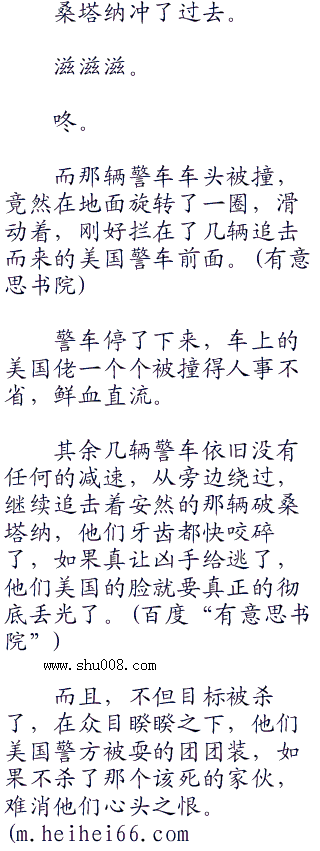 桑塔纳冲了过去。
滋滋滋。
咚。
而那辆警车车头被撞，
竟然在地面旋转了一圈，滑
动着，刚好拦在了几辆追击
而来的美国警车前面。(有意
思书院)
警车停了下来，车上的
美国佬一个个被撞得人事不
省，鲜血直流。
其余几辆警车依旧没有
任何的减速，从旁边绕过，
继续追击着安然的那辆破桑
塔纳，他们牙齿都快咬碎
了，如果真让凶手给逃了，
他们美国的脸就要真正的彻
底丢光了。(百度“有意思书
院”)
www.shu008.com
而且，不但目标被杀
了，在众目睽睽之下，他们
美国警方被耍的团团装，如
果不杀了那个该死的家伙，
难消他们心头之恨。
(m.heihei66.com